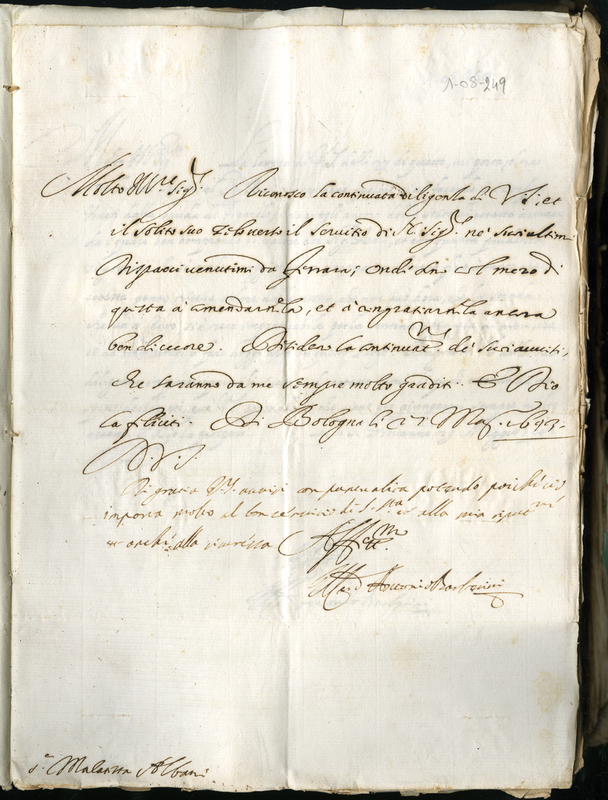 1-08-249
Molto Ill.re Sig.r Riconosco la continuata diligenza di V.S. et
il solito suo zelo verso il servitio di N. Sig.re ne' suoi ultimi
dispacci venutimi da Ferrara; ond'è che col mezo di
questa à comendarnela, et à ringratiarnela ancora
ben di cuore. Desidero la continuat.ne de' suoi avvisi,
che saranno da me sempre molto graditi. E Dio
la feliciti. Di Bologna li 27 Mag. 1643.
D. V. S.
Di gratia V.S. avvisi con puntualità potendo poiche ciò
importa molto al servitio di S. S.tà et alla mia
et anche alla
Aff.mo
Il Card. Antonio Barberini
S.r Malatesta Albani